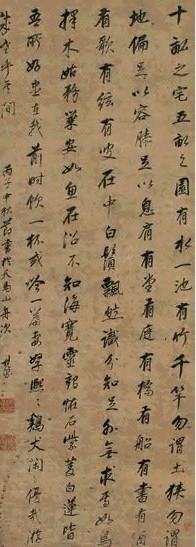 十畝之宅五畝之園有水一池有竹千竿勿謂土狹勿謂
地偏足以容膝足以息肩有堂有庭有橋有船有書有酒
有歌有弦有叟在中白鬚飄然識分知足外無求焉如鳥
擇木姑務巢安如魚在沼不知海寬靈鶴怪石紫菱白蓮皆
吾所好盡在我前時飲一杯或吟一篇妻孥熙熙鷄犬閑閑優哉游
老乎其間
丙子中秋前書於天馬山舟次